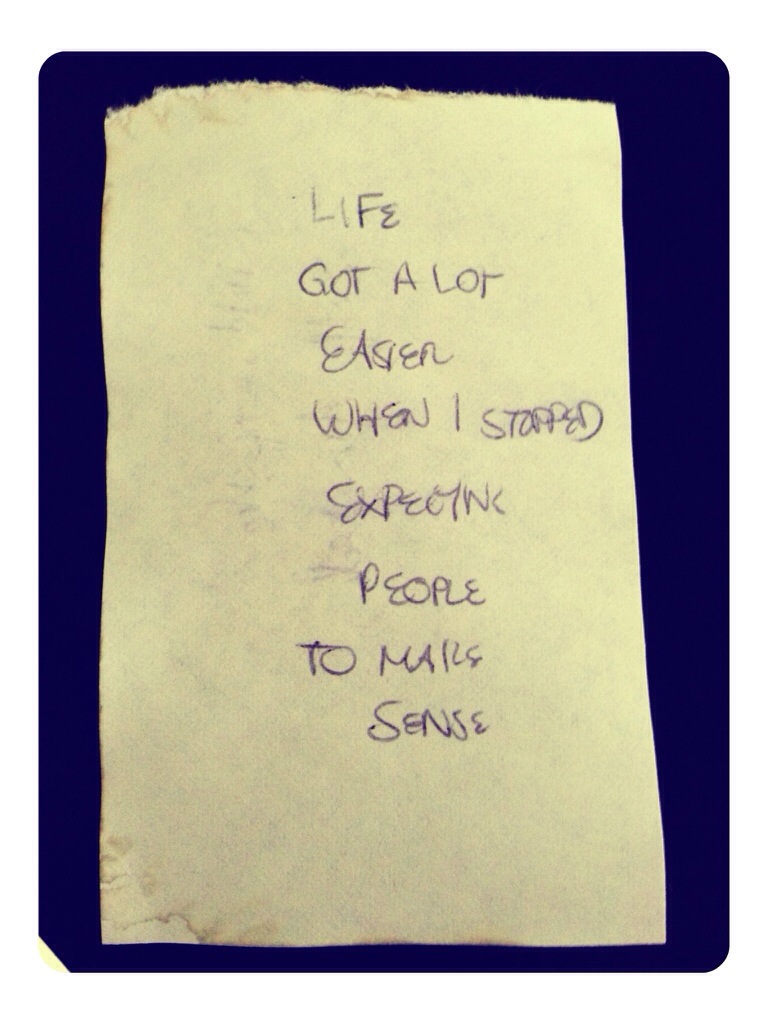 LIFE
GOT A LOT
EASIER
WHEN I STOPPED
EXPECTING
PEOPLE
TO MAKE
SENSE